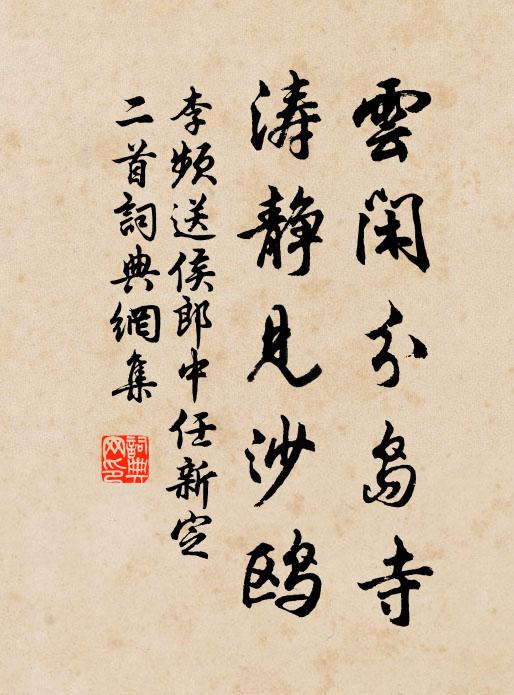 雲閑分島寺
涛靜見沙鷗
李頻送侯郎中任新定
二首詞典網集
詞典
网印